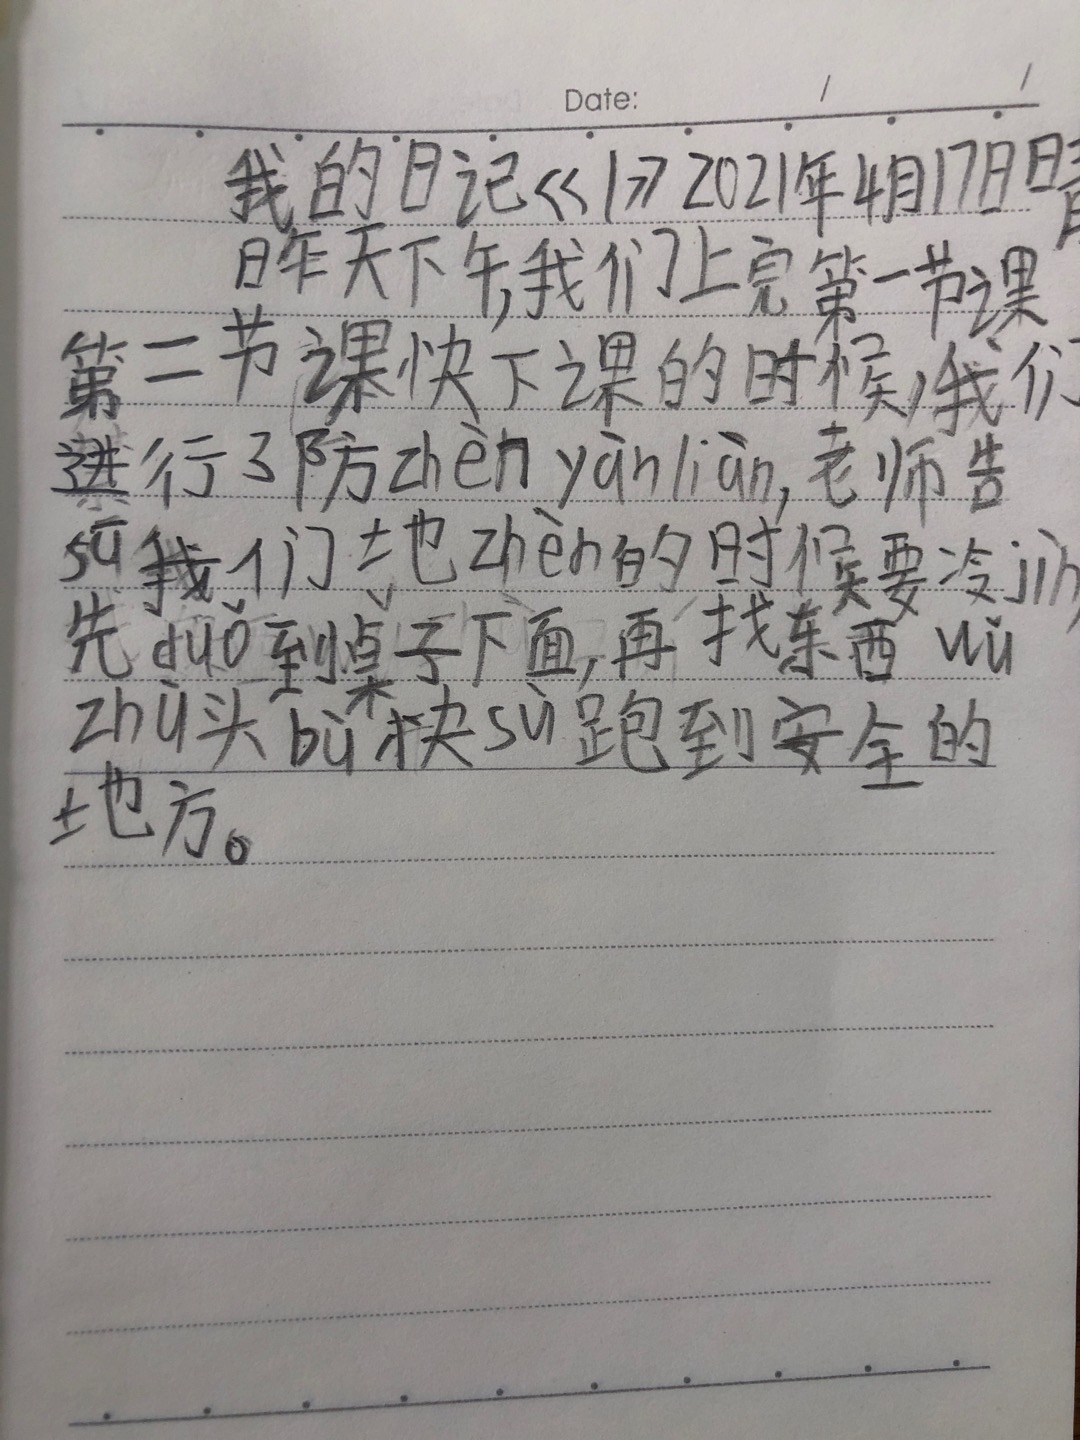 Date: / /
我的日记《1》2021年4月17日晴
昨天下午,我们上完第一节课
第二节课快下课的时候,我们
进行了防zhèn yànliàn,老师告
sū我们地zhèn的时候要冷jìn,
先duǒ到桌子下面,再找东西wǔ
zhù头bù快sù跑到安全的
地方。